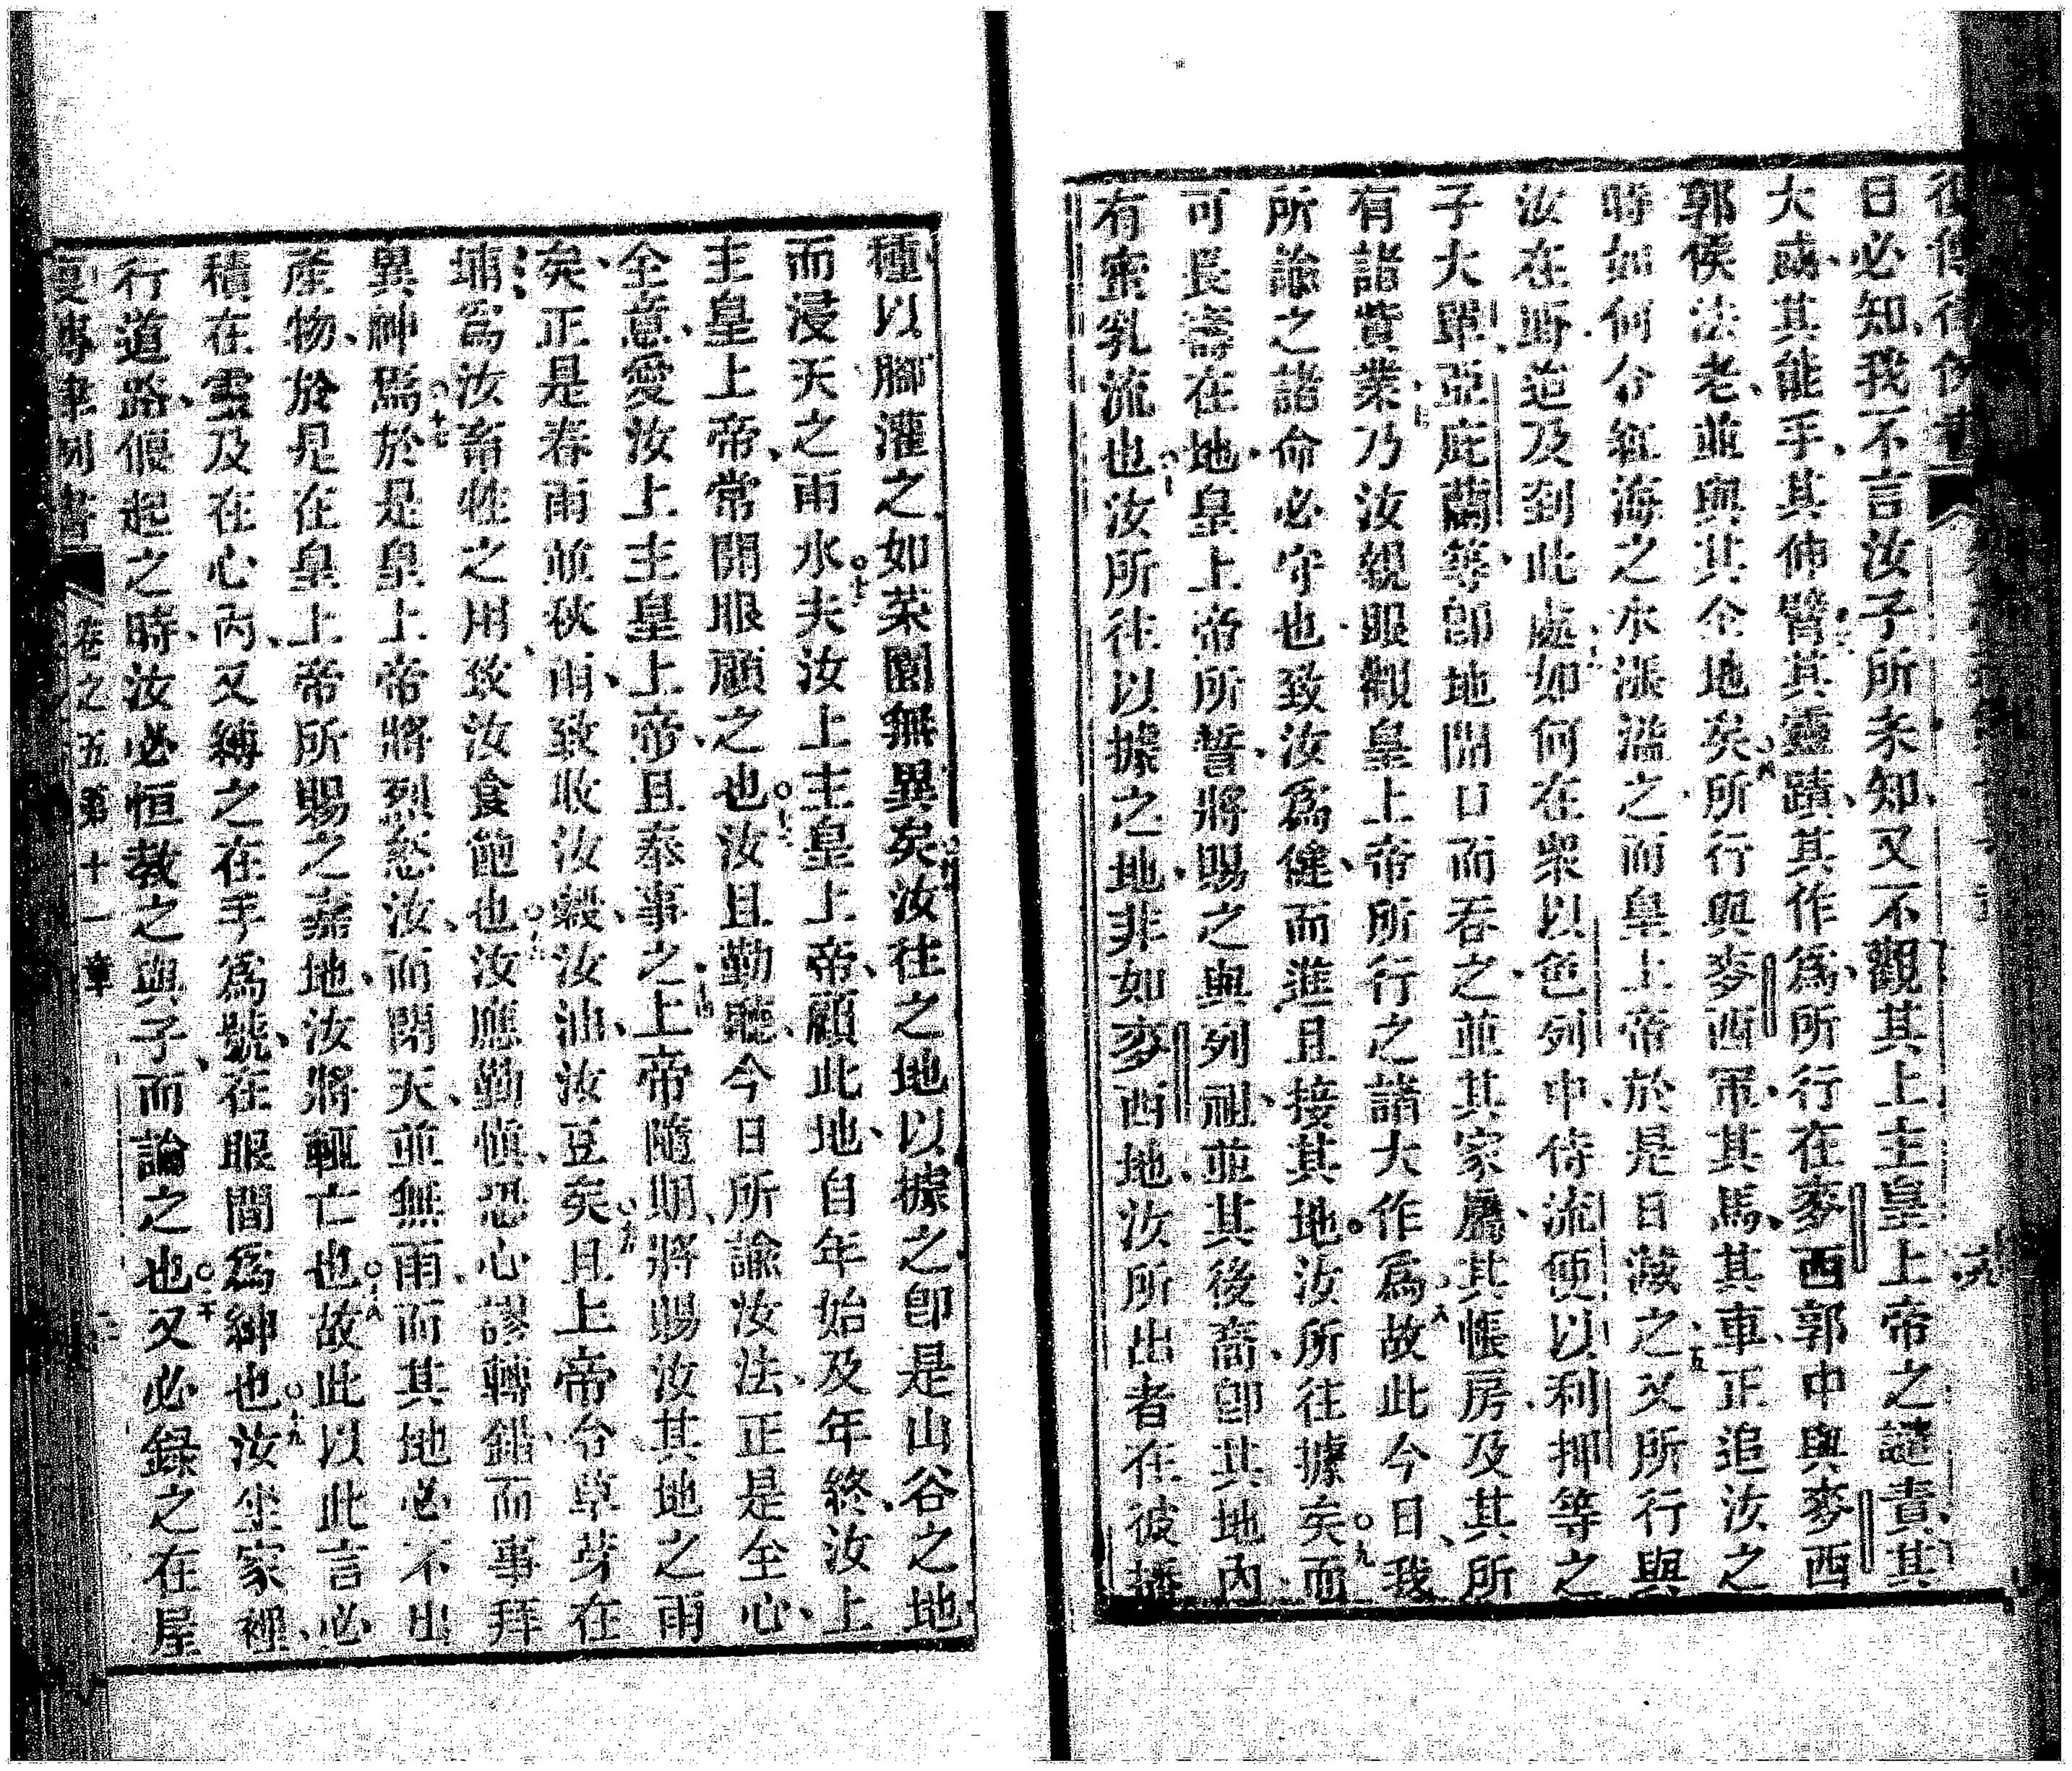 日必知我不言汝子所未知又不觀其上主皇上帝之譴責其
大威其能手其伸臂其靈蹟其作爲所行在麥西郭中與麥西
郭侯法老並與其仝地矣所行與麥西軍其馬其車正追汝之
時如何令紅海之水漲溢之而皇上帝於是日滅之又所行與
汝在野道及到此處如何在衆以色列中侍流便以利押等之
子大單亞庇蘭等卽地開口而吞之並其家屬其帳房及其所
有諸貲業乃汝親眼觀皇上帝所行之諸大作爲故此今日我
所諭之諸命必守也致汝爲健而進且接其地汝所往據矣而
可長壽在地皇上帝所誓將賜之與列祖並其後裔卽其地內
有蜜乳流也汝所往以據之地非如麥西地汝所出者在彼播
種以腳灌之如菜園無異矣汝往之地以據之卽是山谷之地
而浸天之雨水夫汝上主皇上帝顧此地自年始及年終汝上
主皇上帝常開眼顧之也汝且勤聽今日所諭汝法正是全心
全意愛汝上主皇上帝且奉事之上帝隨期將賜汝其地之雨
矣正是春雨並秋雨致收汝穀汝油汝荳矣且上帝令草芽在
埔爲汝畜牲之用致汝食飽也汝應勤慎恐心謬轉錯而事拜
異神焉於是皇上帝將烈怒汝而閉天並無雨而其地必不出
產物於是在皇上帝所賜之嘉地汝將輒亡也故此以此言必
積在靈及在心內又縛之在手爲號在眼間爲紳也汝坐家裡
行道路便起之時汝必恒教之與子而論之也又必錄之在屋
復傳律例書 卷之五第十一章